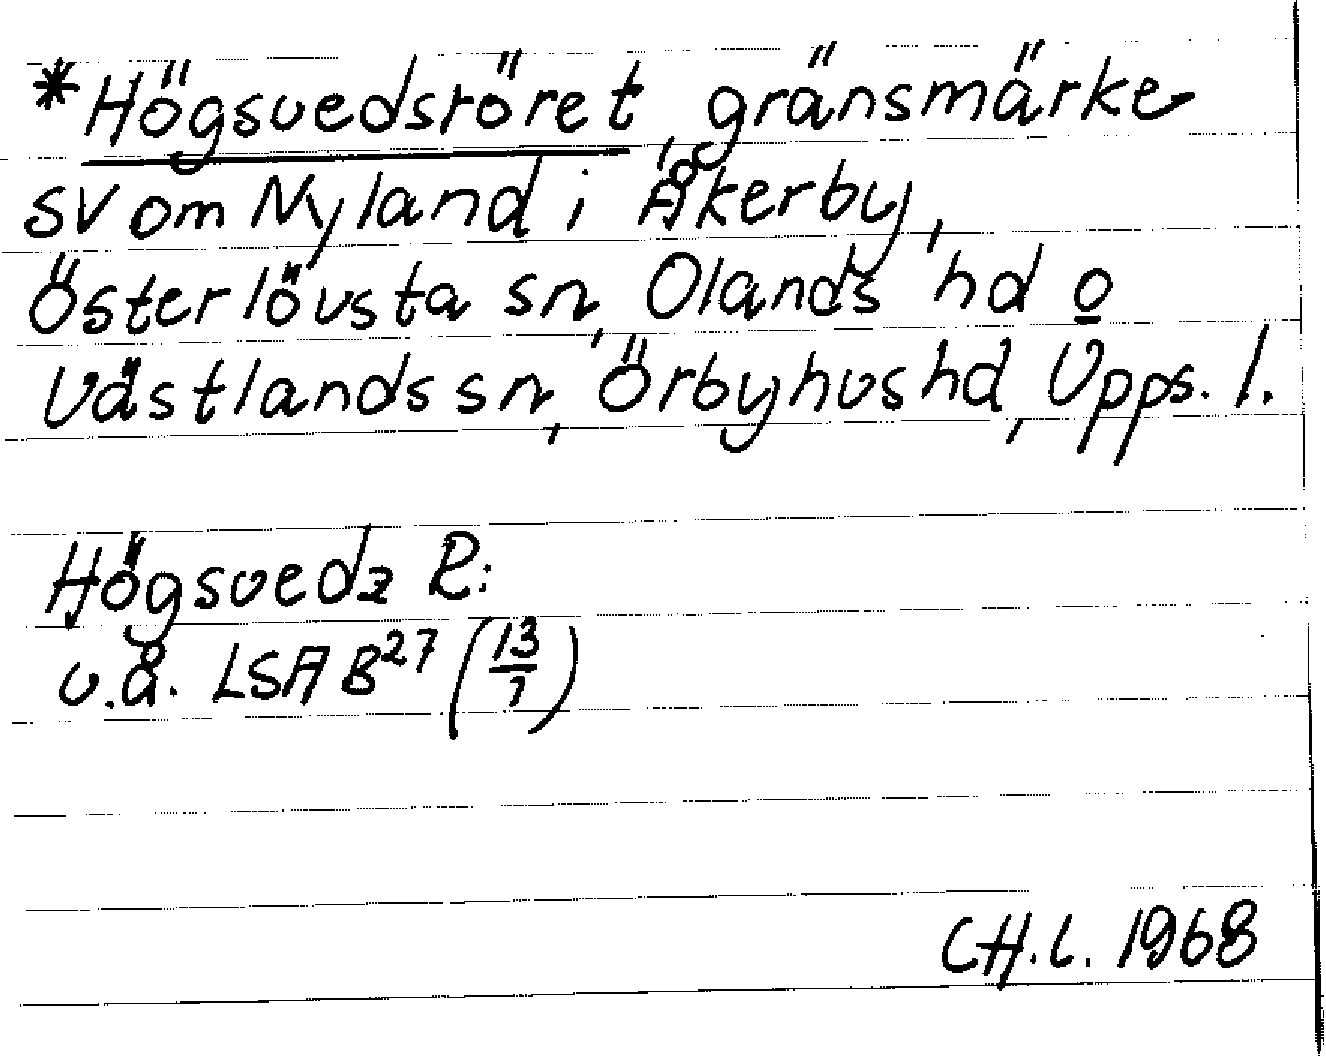 *Högsvedsröret, gränsmärke
SV om Nyland i Åkerby,
Österlövsta sn, Olands hd o
Västlands sn, Örbyhus hd, Upps. l.
Högsvedz R:
u.å. LSA B27 (13/7)
CH.L. 1968